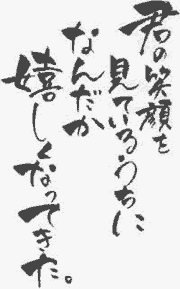 君の笑顔を
見ているうちに
なんだか
嬉しくなってきた。